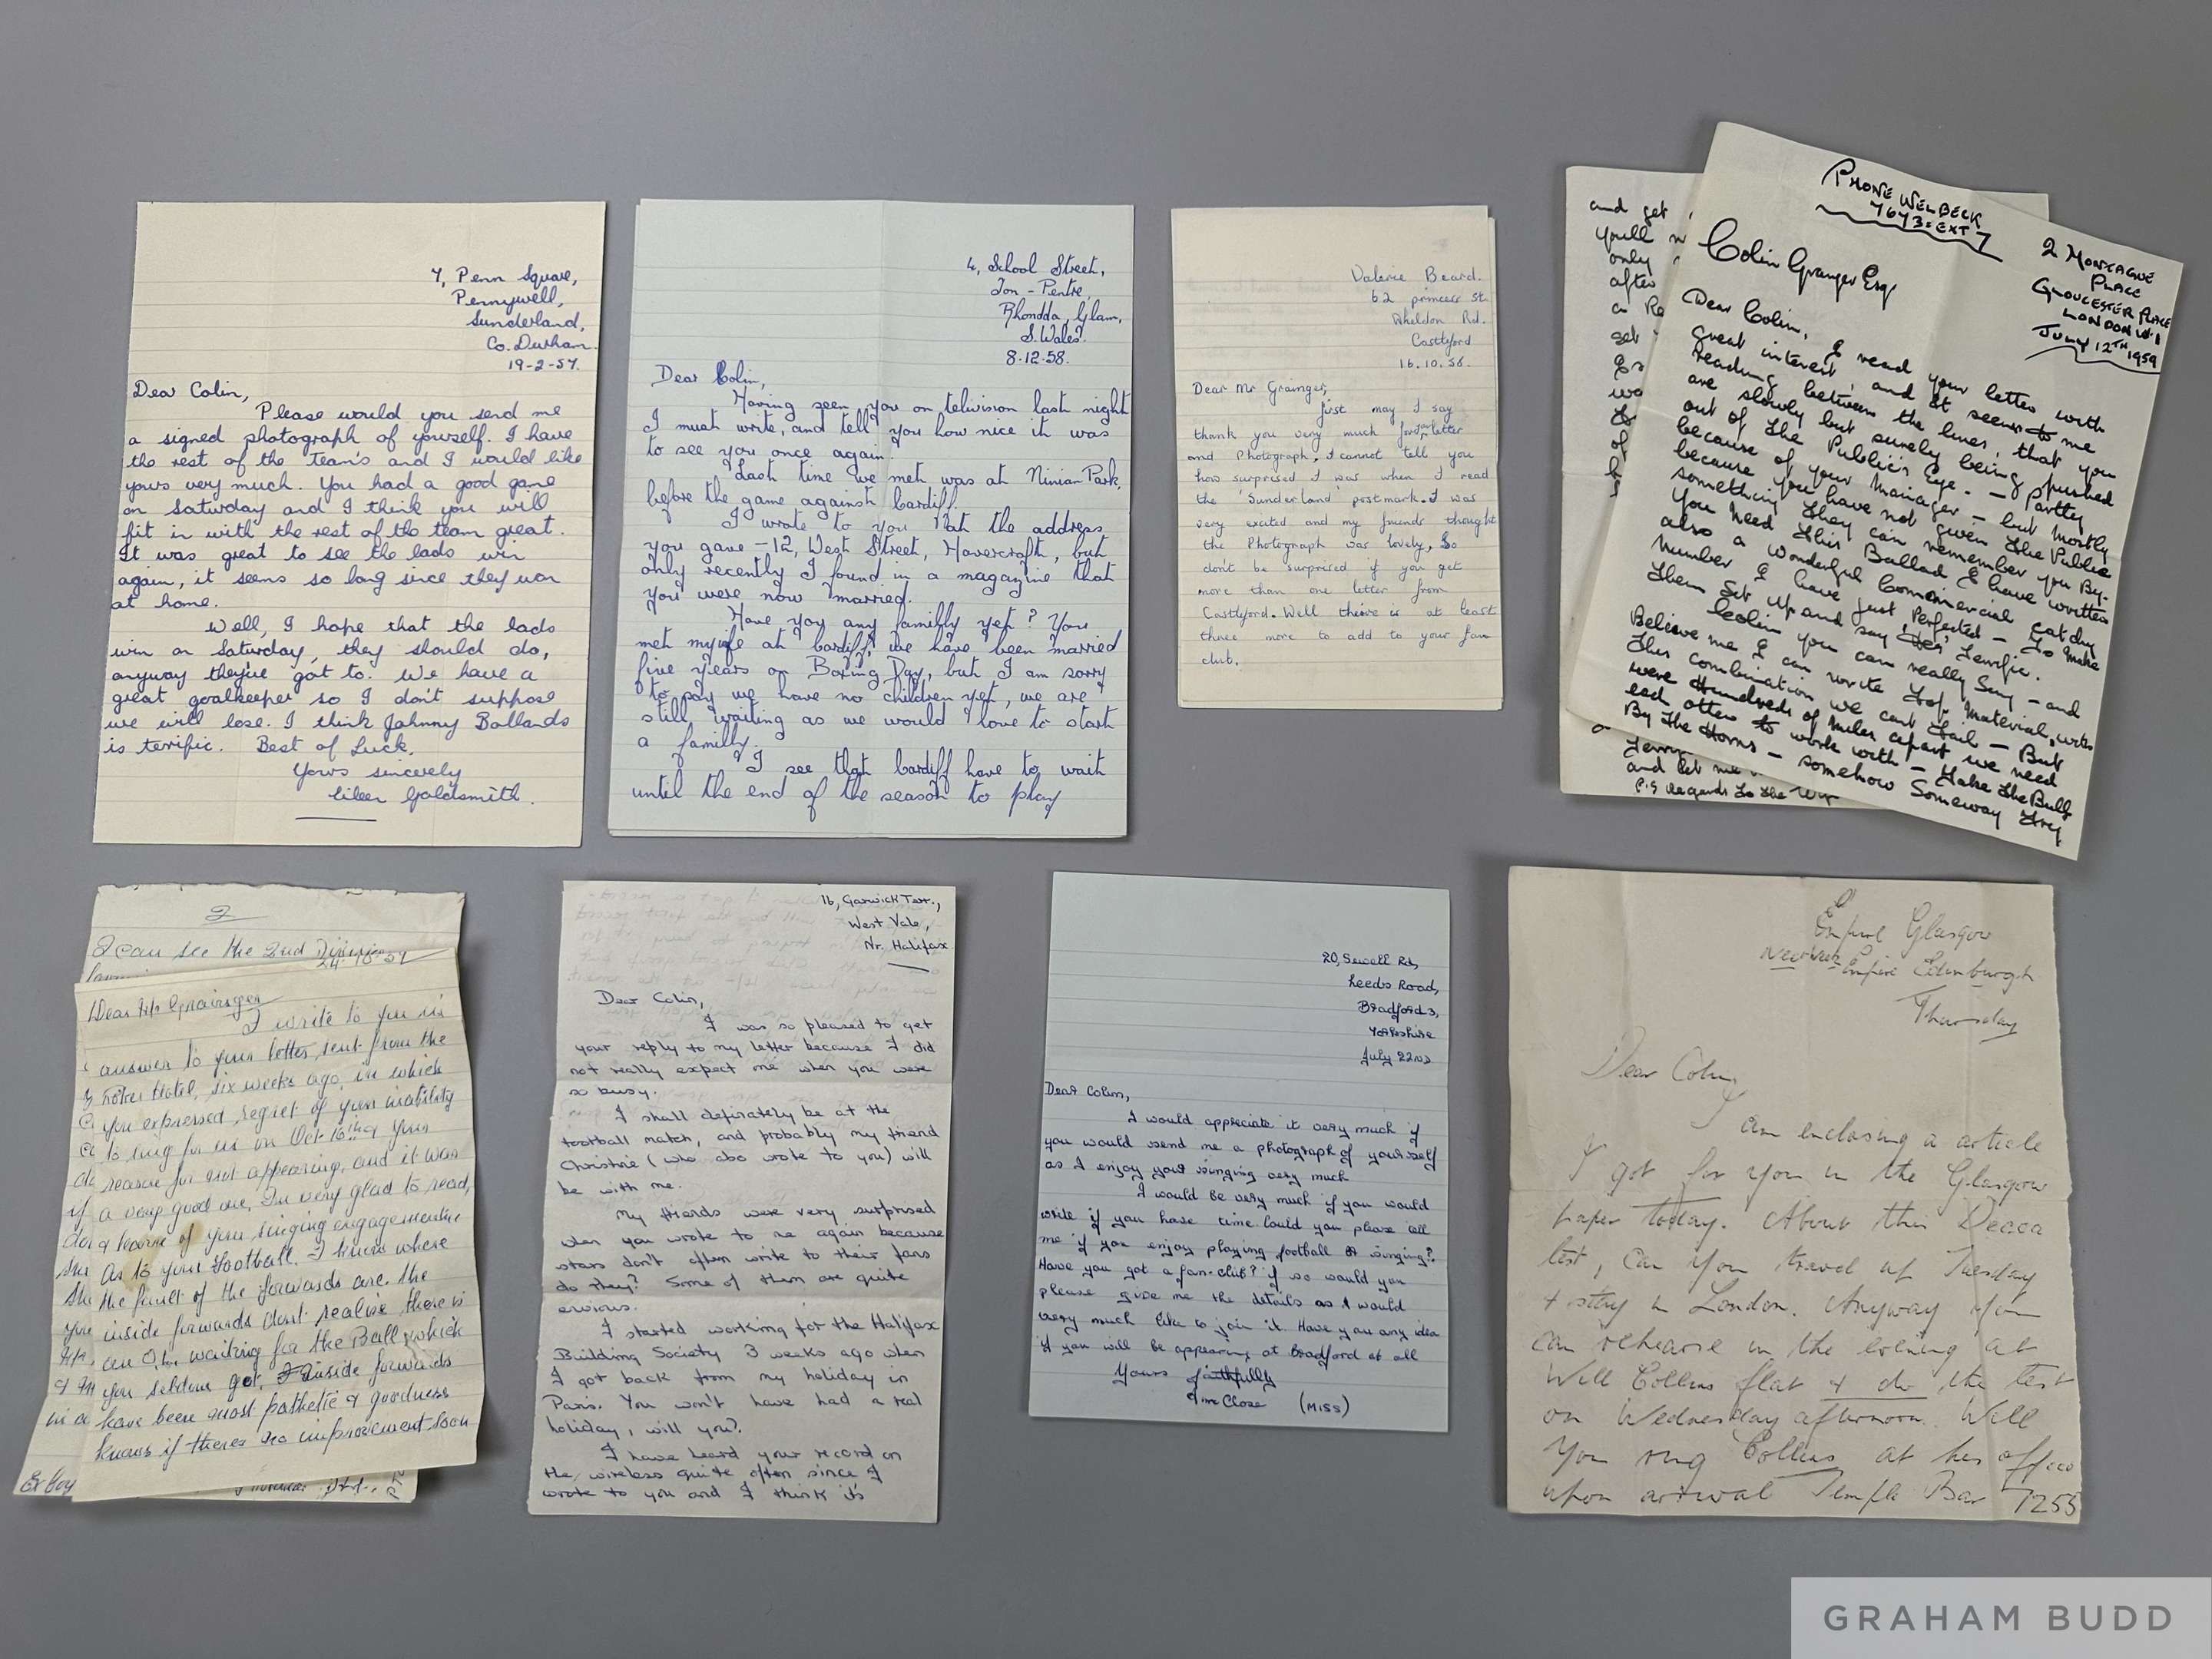 7, Penn Square,
Pennywell,
Sunderland,
Co. Durham.
19-2-57.
Dear Colin,
Please would you send me
a signed photograph of yourself. I have
the rest of the Team's and I would like
yours very much. You had a good game
on Saturday and I think you will
fit in with the rest of the team great.
It was great to see the lads win
again, it seems so long since they won
at home.
Well, I hope that the lads
win on Saturday, they should do,
anyway they've got to. We have a
great goalkeeper so I don't suppose
we will lose. I think Johnny Bollands
is terrific. Best of Luck.
Yours sincerely
Eileen Goldsmith.
4, School Street,
Ton-Pentre,
Rhondda, Glam,
S. Wales.
8.12.58.
Dear Colin,
Having seen you on telivision last night
I must write, and tell you how nice it was
to see you once again.
Last time we met was at Ninian Park,
before the game against Cardiff.
I wrote to you at the address
you gave -12, West Street, Havercroft, but
only recently I found in a magazine that
you were now married.
Have you any familly yet? You
met my wife at Cardiff, we have been married
five years on Boxing Day, but I am sorry
to say we have no children yet, we are
still waiting as we would love to start
a familly.
I see that Cardiff have to wait
until the end of the season to play
Valerie Beard.
62 princess St.
Wheldon Rd.
Castlford
16.10.58.
Dear Mr Grainger,
first may I say
thank you very much for your letter
and Photograph, I cannot tell you
how surprised I was when I read
the 'Sunderland' postmark. I was
very excited and my friends thought
the Photograph was lovely, So
don't be surprised if you get
more than one letter from
Castlyford. Well theire is at least
three more to add to your fan
club.
and get
you'll
only
after
a
get
PHONE WELBECK
7673: EXT 7
2 MONTAGUE
PLACE
GLOUCESTER PLACE
LONDON W.1
JULY 12TH 1959
Colin Granger Esq
Dear Colin,
I read your letter with
great interest, and it seems to me
reading between the lines, that you
are slowly but surely being pushed
out of the Public's Eye. - partly
because of your Manager - but mostly
because you have not given the Public
something they can remember you By.
You need this Ballad I have written
also a wonderful Commercial catchy
number I have just Perfected - to make
them Set up and say terrific.
Colin you can really Sing - and
Believe me I can write top. Material, with
this combination we cant fail - But
were Hundreds of miles apart we need
each other to work with - take the Bull
By the Horns - somehow Someway
Terry
and let me
P.S Regards to the
2
I can see the 2nd Division
24-10-57
Dear Mr Grainger
I write to you in
answer to your letter sent from the
Hotel, six weeks ago, in which
you expressed regret of your inability
to sing for us on Oct 16th & your
reason for not appearing, and it was
a very good one, I'm very glad to read,
& learn of your singing engagements
As to your Football. I know where
the fault of the forwards are. the
inside forwards dont realise there is
an O.L. waiting for the Ball, which
you seldom get. inside forwards
have been most pathetic & goodness
knows if theres no improvement soon
16, Garwick Terr.,
West Vale,
Nr. Halifax
Dear Colin,
I was so pleased to get
your reply to my letter because I did
not really expect one when you were
so busy.
I shall definately be at the
football match, and probably my friend
Christine (who also wrote to you) will
be with me.
My friends were very surprised
when you wrote to me again because
stars don't often write to their fans
do they? Some of them are quite
envious.
I started working for the Halifax
Building Society 3 weeks ago when
I got back from my holiday in
Paris. You won't have had a real
holiday, will you?
I have heard your record on
the wireless quite often since I
wrote to you and I think it's
20, Sewell Rd,
Leeds Road,
Bradford 3,
Yorkshire
July 22nd
Dear Colin,
I would appreciate it very much if
you would send me a photograph of yourself
as I enjoy your singing very much
I would be very much if you would
write if you have time. Could you please tell
me if you enjoy playing football or singing?
Have you got a fan-club? if so would you
please give me the details as I would
very much like to join it. Have you any idea
if you will be appearing at Bradford at all
Yours faithfully
Close (MISS)
Empire Glasgow
Next Week - Empire Edinburgh
Thursday
Dear Colin,
I am enclosing a article
I got for you in the Glasgow
paper today. About this Decca
test, Can you travel up Tuesday
& stay in London. Anyway you
can rehearse in the evening at
Will Collins flat & do the test
on Wednesday afternoon. Will
you ring Collins at his office
upon arrival Temple Bar 7255
GRAHAM BUDD